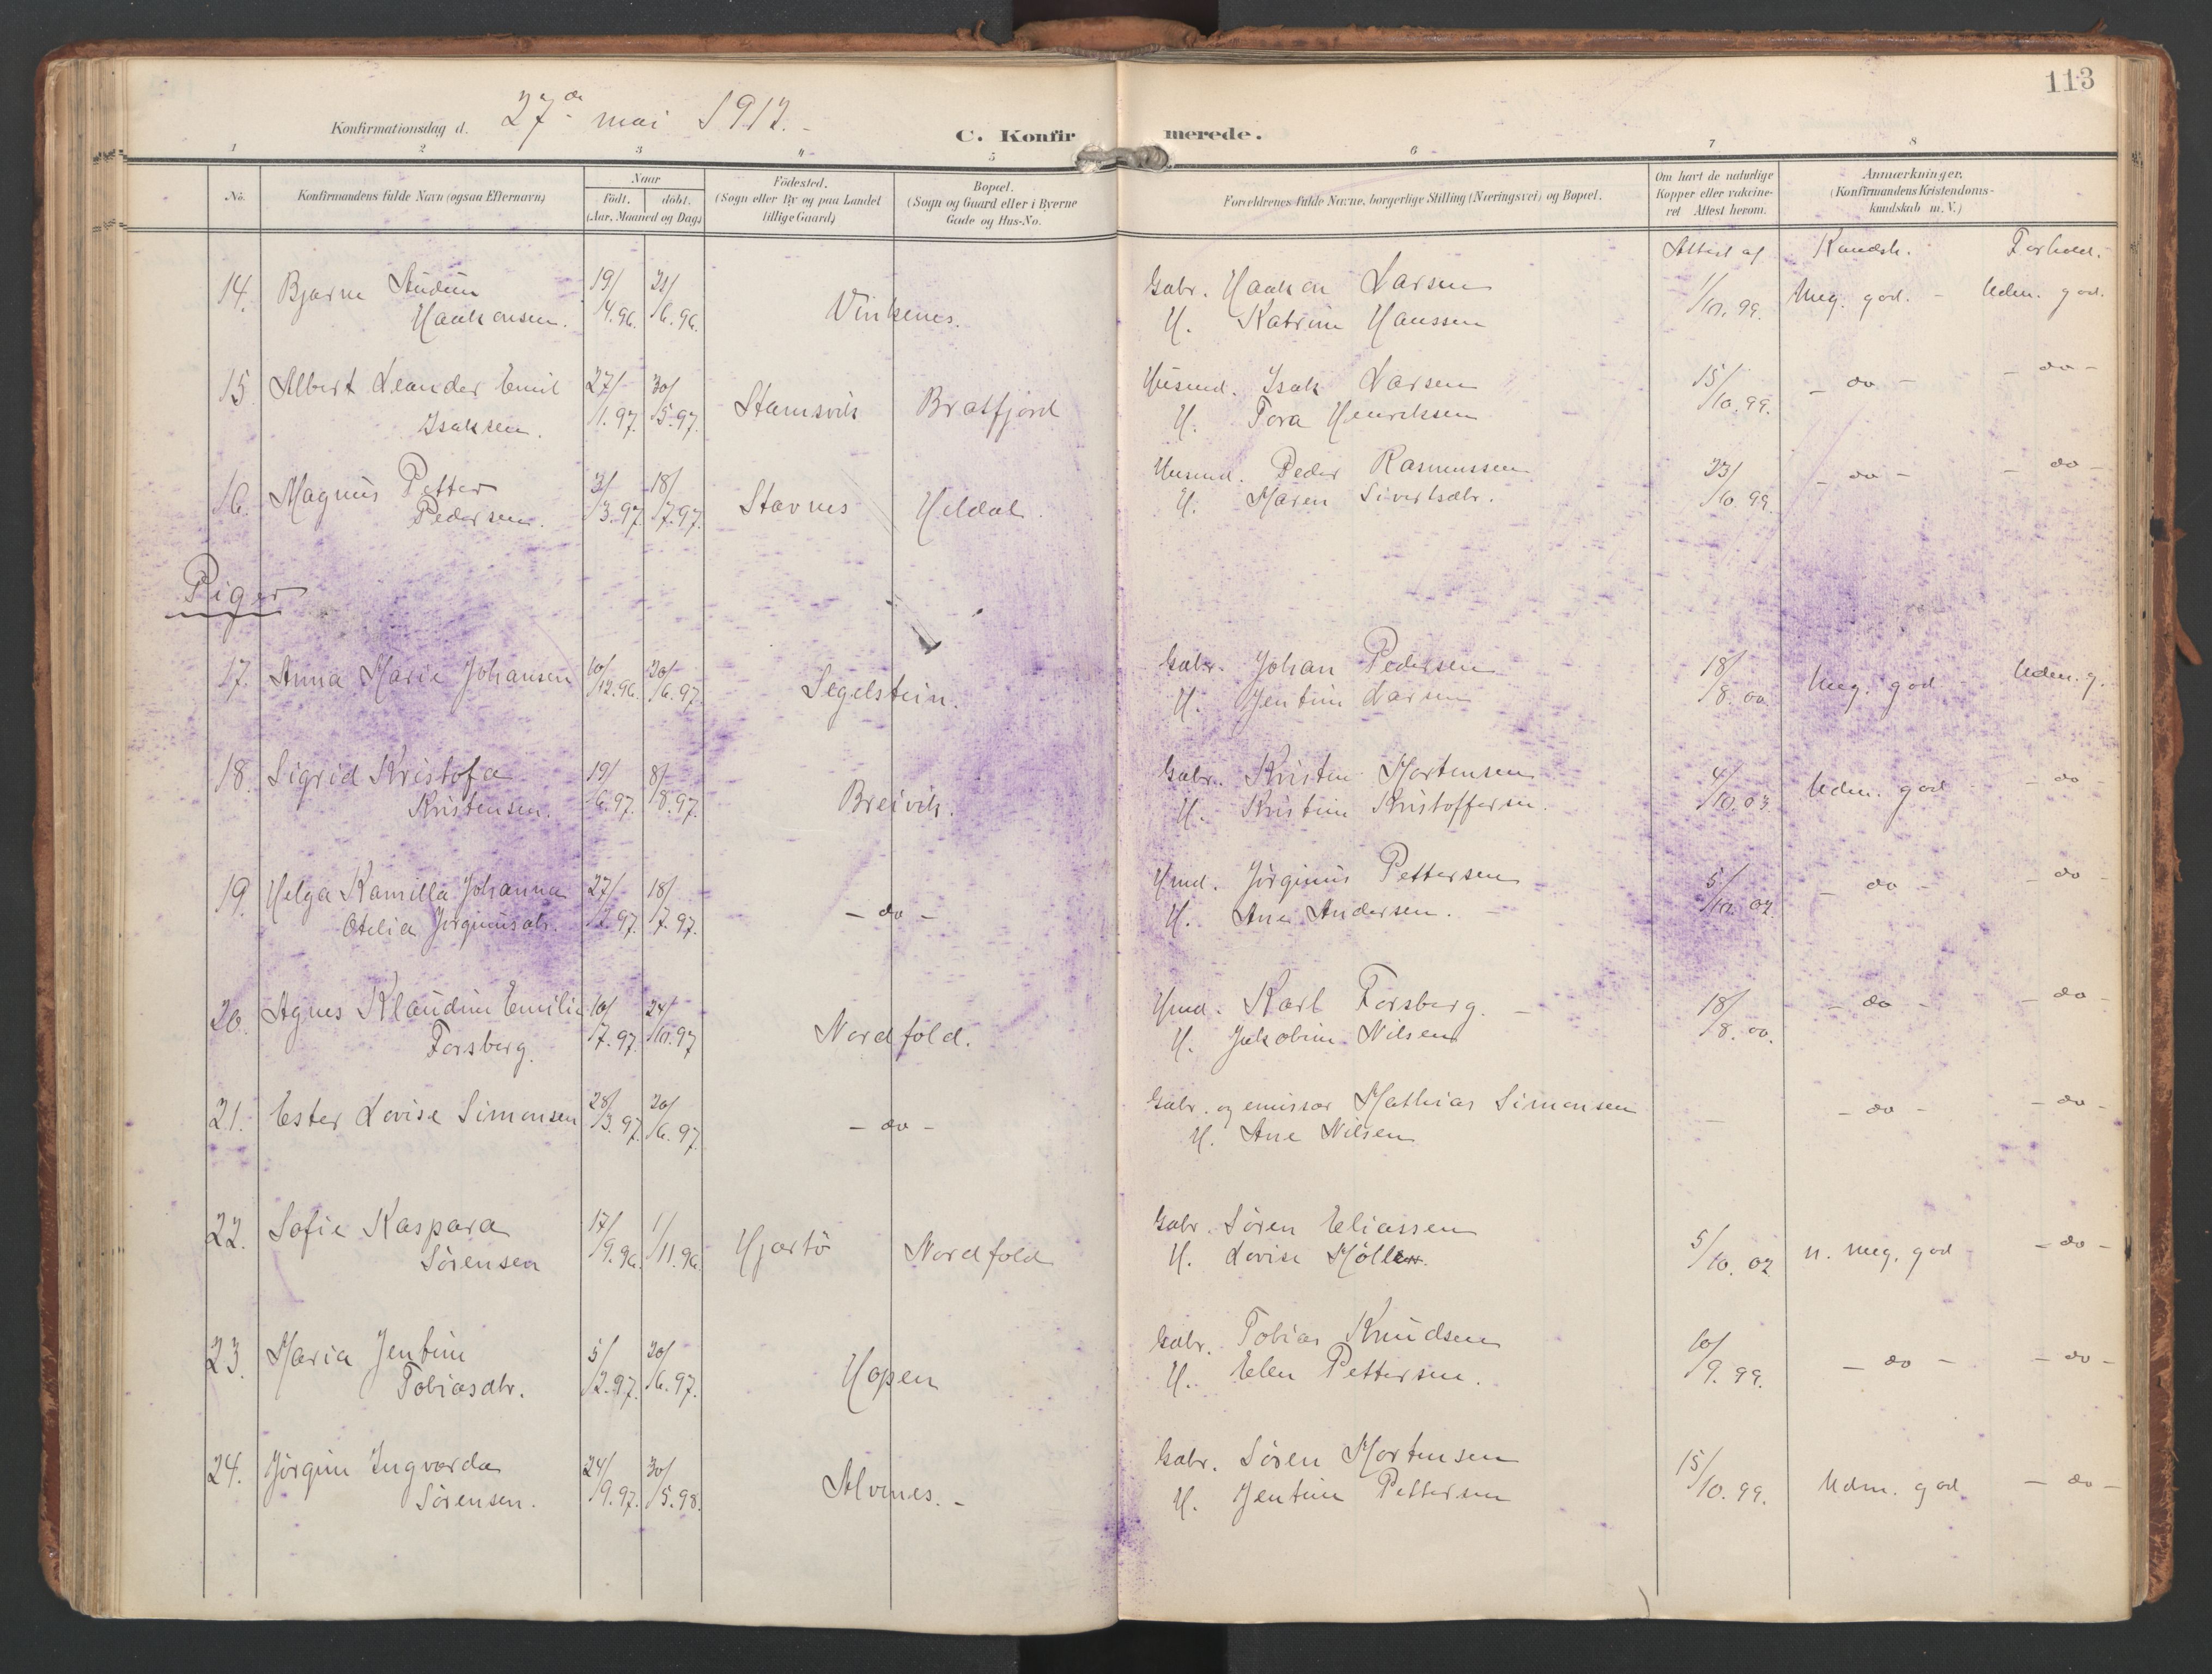 113
Konfirmationsdag d. 27de mai 1912.
C. Konfirmerede.
1 2 3 4 5 6 7 8
No.
Konfirmandens fulde Navn (ogsaa Efternavn)
Naar
födt. döbt.
(Aar, Maaned og Dag)
Födested.
(Sogn eller By og paa Landet
tillige Gaard)
Bopæl.
(Sogn og Gaard eller i Byerne
Gade og Hus-No.
Forældrenes fulde Navne, borgerlige Stilling (Næringsvei) og Bopæl.
Om havt de naturlige
Kopper eller vakcine-
ret Attest herom.
Anmærkninger.
(Konfirmandens Kristendoms-
kundskab m. V.)
Attest af Kundsk. Forhold.
14. Bjarne Audun 19/4.96. 21/6.96. Vinkenes. Gabr. Haakon Larsen 1/10.99. Meg. god. - Udm. god.
Haakonsen. H. Katrine Hanssen
15. Albert Leander Emil 27/1.97. 30/5.97. Stamsvik Bratfjord Husmd. Isak Larsen 15/10.99. - do - - do -
Isaksen. H. Tora Henriksen
16. Magnus Petter 3/3.97. 18/7.97. Stavnes Heldal. Husmd. Peder Rasmussen 23/10.99. - do - - do -
Pedersen. H. Maren Sivertsdtr.
Piger
17. Anna Marie Johansen 10/12.96. 20/6.97. Segelstein. Gabr. Johan Pedersen 18/8.00. Meg. god Udm. g.
H. Jentine Larsen
18. Sigrid Kristofa 19/6.97. 8/8.97. Breivik. Gabr. Kristen Mortensen 4/10.03 Udm. god - do -
Kristensen. H. Kristine Kristoffersen.
19. Helga Kamilla Johanna 27/2.97. 18/7.97. - do - Hmd. Jörginus Pettersen 5/10.02 - do - - do -
Otelia Jörginusdtr. H. Ane Andersen. -
20. Agnes Klaudine Emilie 10/7.97. 24/10.97 Nordfold. Hmd. Karl Forsberg. - 18/8.00. - do - - do -
Forsberg. H. Jakobine Nilsen
21. Ester Lovise Simonsen 28/3.97. 20/6.97. - do - Gabr. og emissær Mathias Simonsen - - do - - do -
H. Ane Nilsen
22. Sofie Kaspara 17/9.96. 1/11.96. Hjartö Nordfold Gabr. Sören Eliassen 5/10.02 n. meg. god - do -
Sörensen H. Lovise Möller.
23. Maria Jentine 5/2.97. 20/6.97. Hopen Gabr. Tobias Knudsen 10/9.99. - do - - do -
Tobiasdtr. H. Elen Pettersen.
24. Jörgine Ingvarda 24/9.97. 30/5.98. Alvenes. - Gabr. Sören Mortensen 15/10.99. Udm. god. - do -
Sörensen. H. Jentine Pettersen